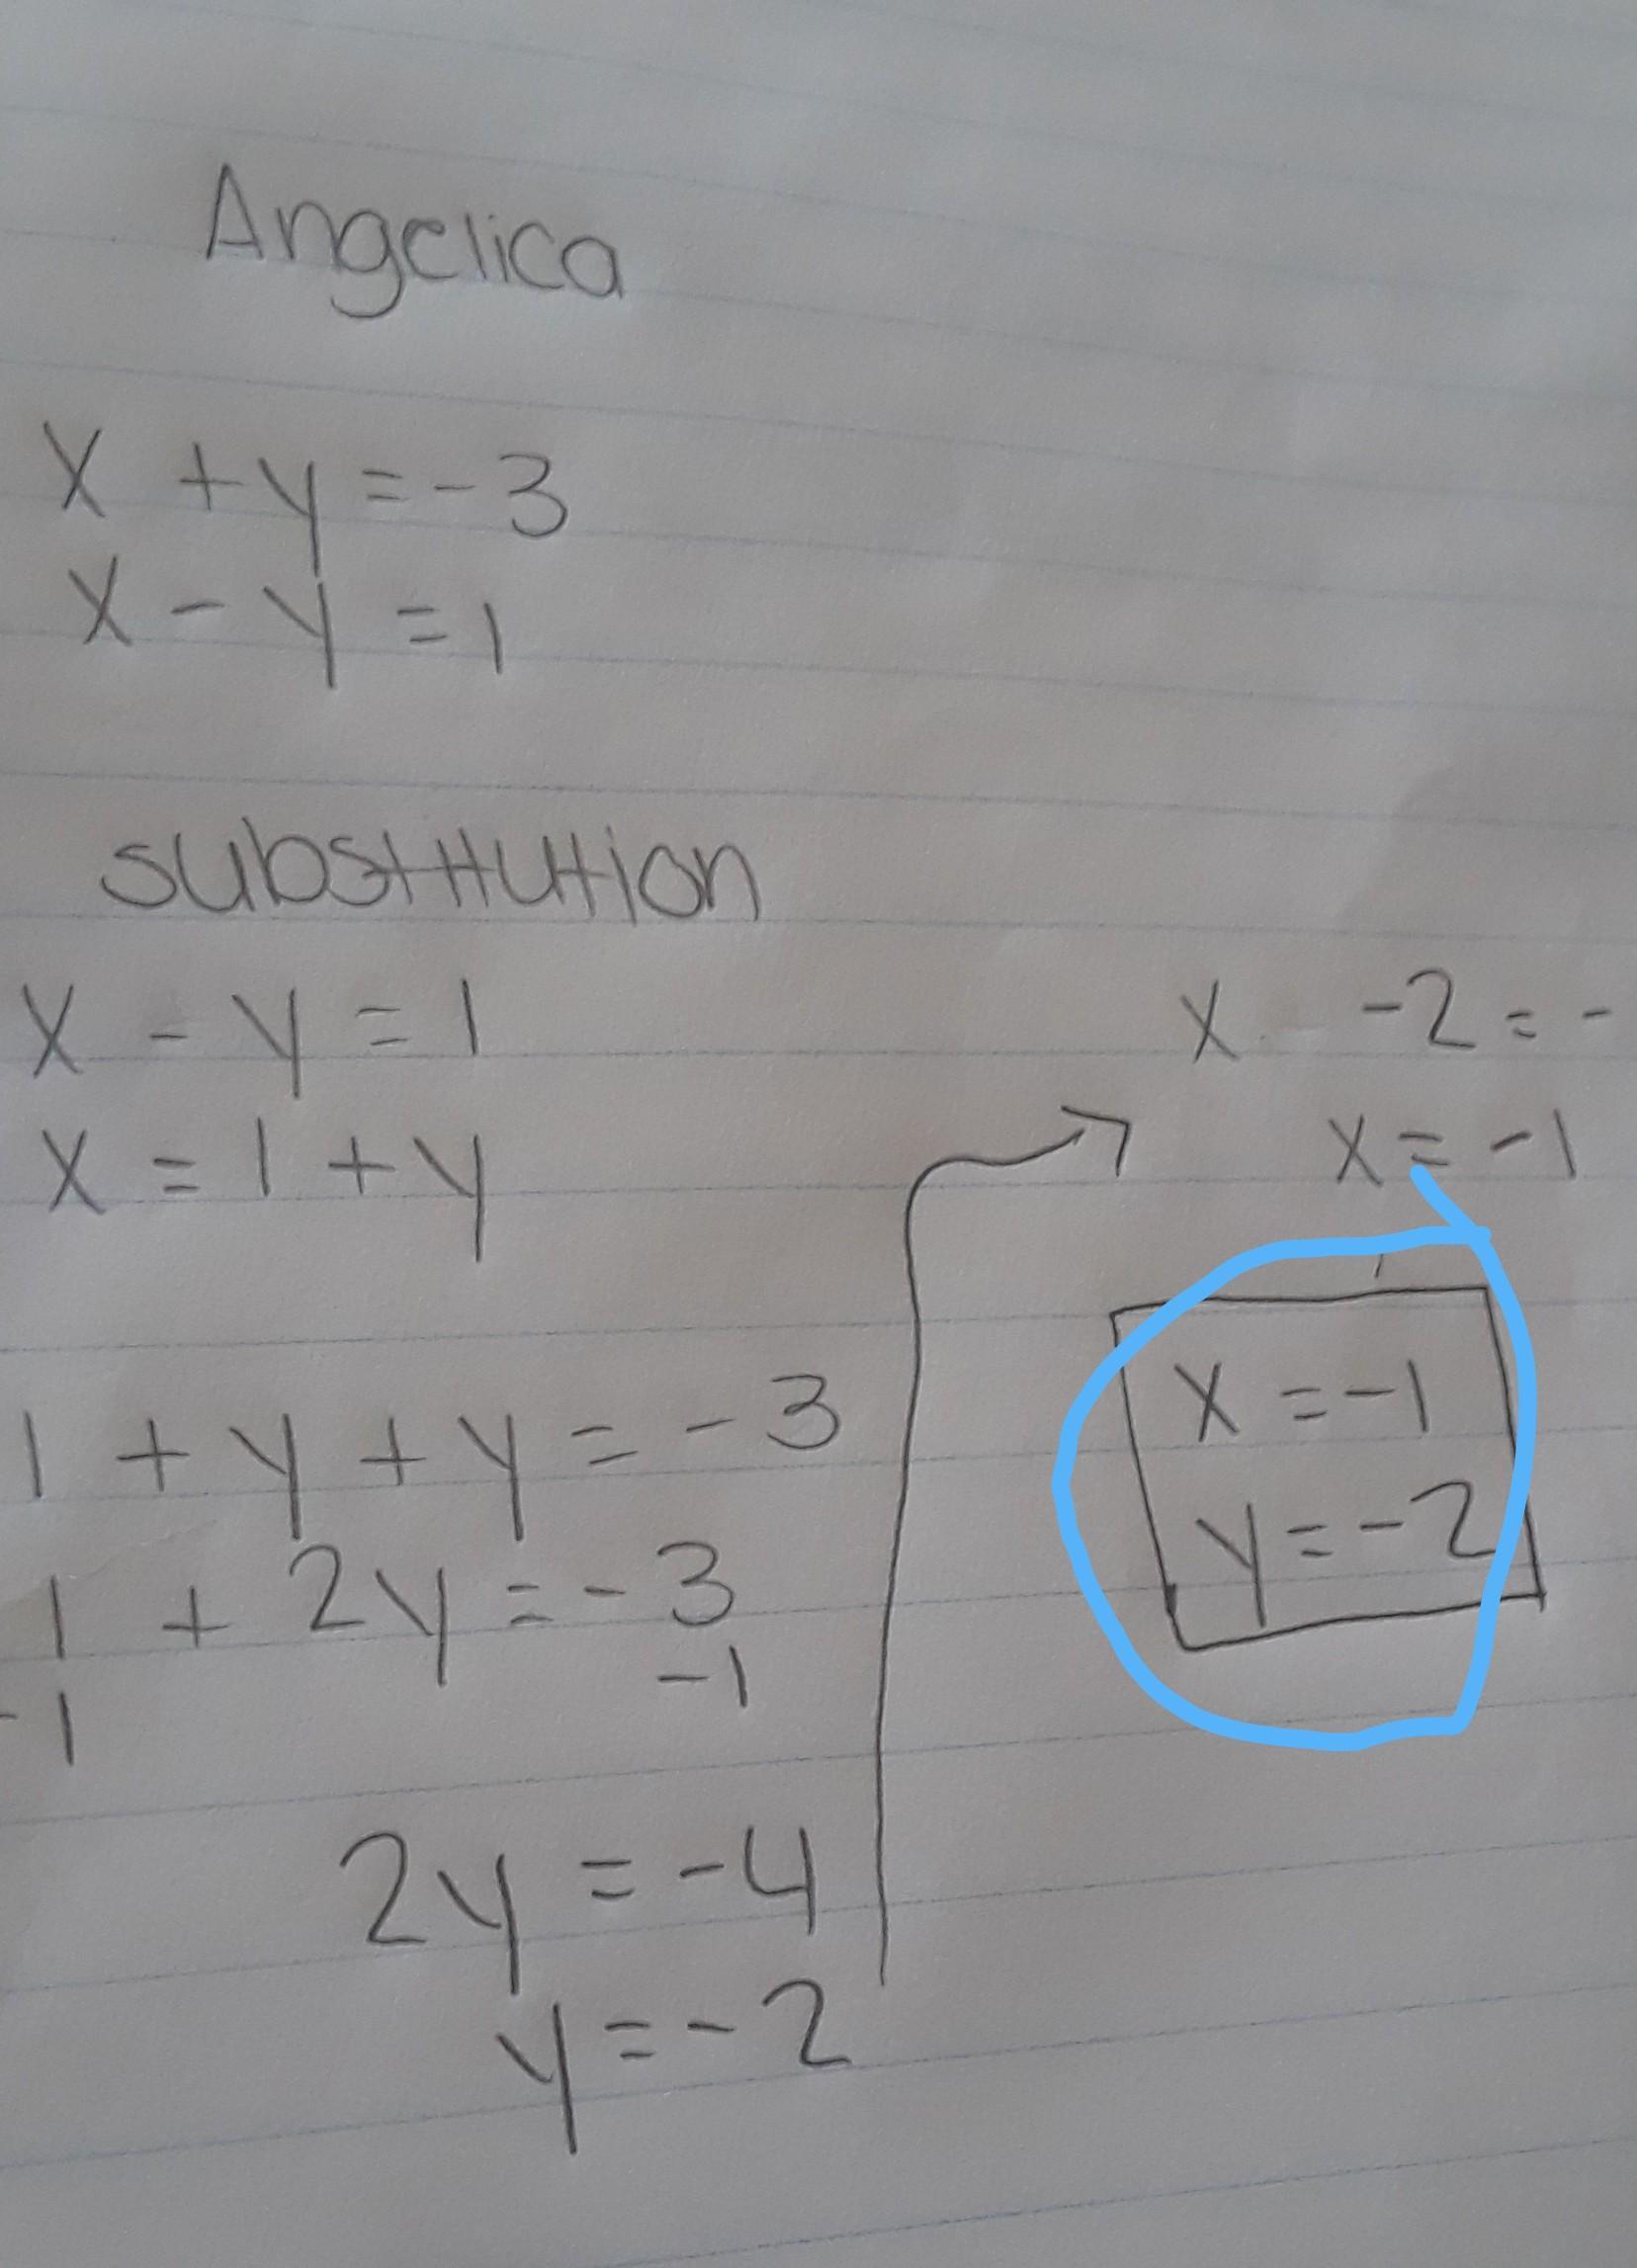 Angelica
x + y = -3
x - y = 1
substitution
x - y = 1
x = 1 + y
1 + y + y = -3
1 + 2y = -3
-1 -1
2y = -4
y = -2
x -2 = -
x = -1
x = -1
y = -2